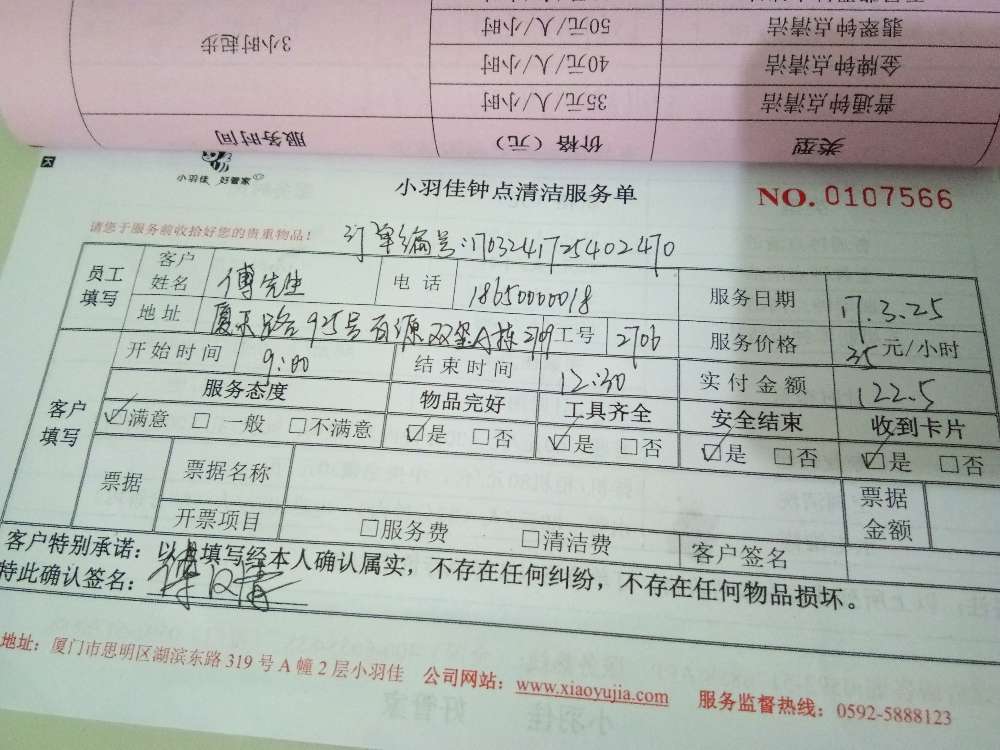 翡翠钟点清洁 50元/人/小时
金牌钟点清洁 40元/人/小时 3小时起步
普通钟点清洁 35元/人/小时
类型 价格（元） 服务时间
小羽佳 好管家
小羽佳钟点清洁服务单 NO. 0107566
请您于服务前收拾好您的贵重物品！ 订单编号:1703241725402470
员工填写 客户姓名 傅先生 电话 18650000018 服务日期 17.3.25
地址 厦禾路925号百源双玺A栋2709 工号 2706 服务价格 35元/小时
客户填写 开始时间 9:00 结束时间 12:30 实付金额 122.5
服务态度 物品完好 工具齐全 安全结束 收到卡片
☑满意 □一般 □不满意 ☑是 □否 ☑是 □否 ☑是 □否 ☑是 □否
票据 票据名称 票据金额
开票项目 □服务费 □清洁费 客户签名
客户特别承诺：以上填写经本人确认属实，不存在任何纠纷，不存在任何物品损坏。
特此确认签名：
地址：厦门市思明区湖滨东路319号A幢2层小羽佳 公司网站：www.xiaoyujia.com 服务监督热线：0592-5888123